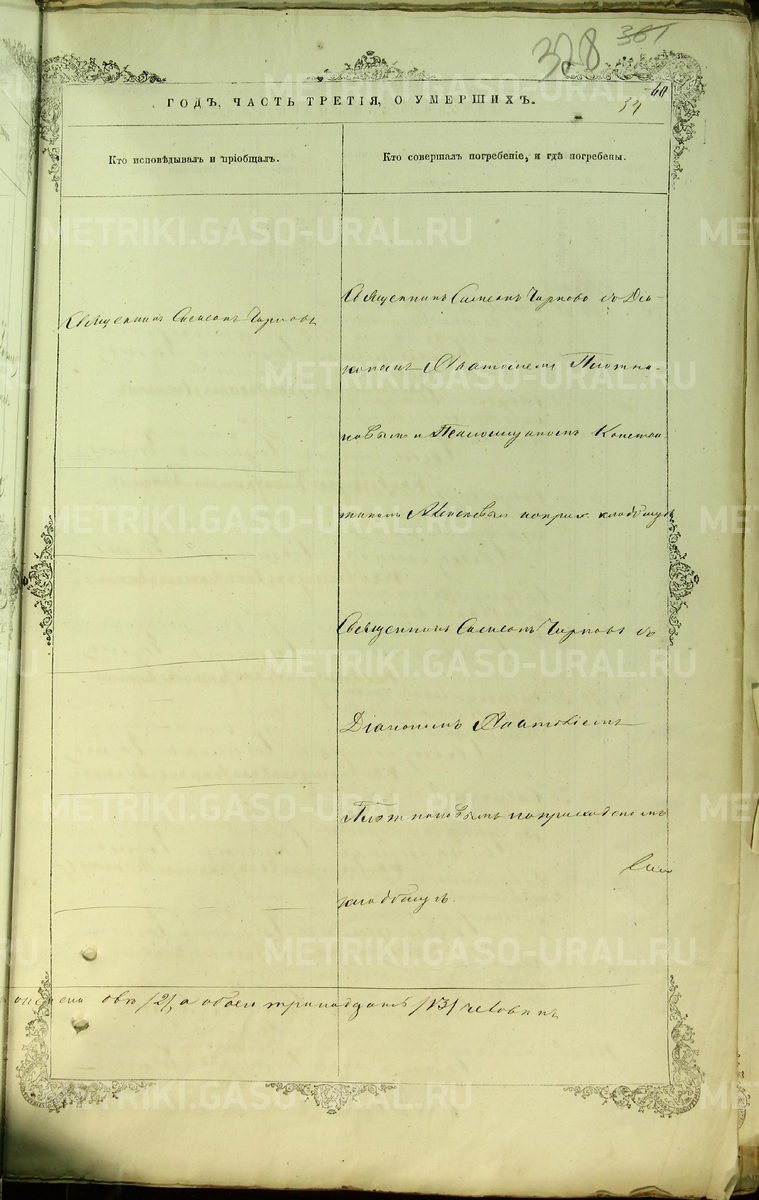 328 361
60
54
ГОДЪ, ЧАСТЬ ТРЕТІЯ, О УМЕРШИХЪ.
Кто исповѣдывалъ и пріобщалъ.
Кто совершалъ погребеніе, и гдѣ погребены.
Священникъ Симеонъ Чирковъ
Священникъ Симеонъ Чирковъ съ Діа-
кономъ Платономъ Плотни-
ковымъ и Псаломщикомъ Констан
тиномъ на прих. кладбищѣ
Священникъ Симеонъ Чирковъ съ
Діакономъ
Плотниковымъ на приходскомъ
кладбищѣ.
два /2/, а обоего тринадцать /13/ человѣкъ
METRIKI.GASO-URAL.RU